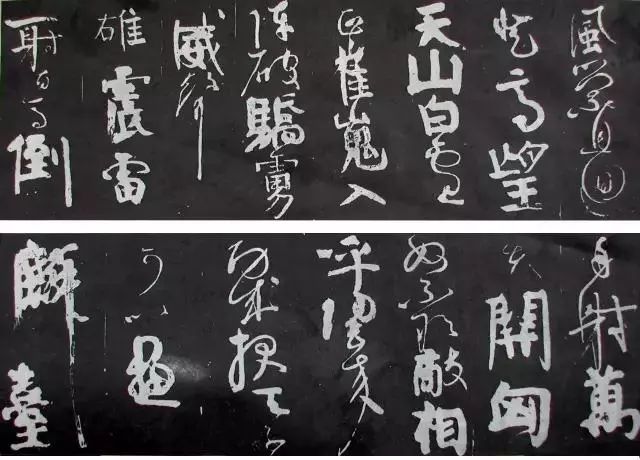 風縈且回
登高望
天山白雲
正崔嵬入
陣破驕虜
威聲
雄震雷
一射百馬倒
再射萬
夫開匈
奴不敢敵相
呼歸去來
功成報天子
可以畫
麟臺